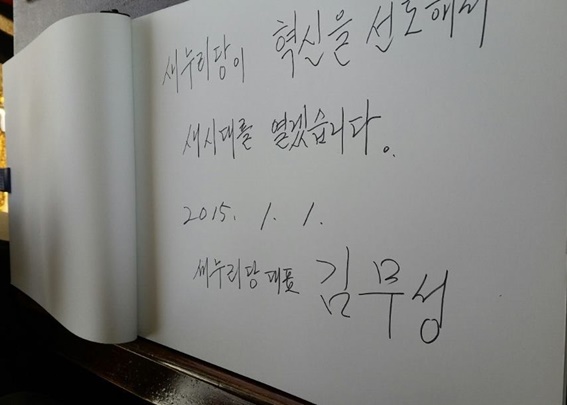 새누리당이 혁신을 선도해서
새시대를 열겠습니다.
2015. 1. 1.
새누리당 대표 김무성